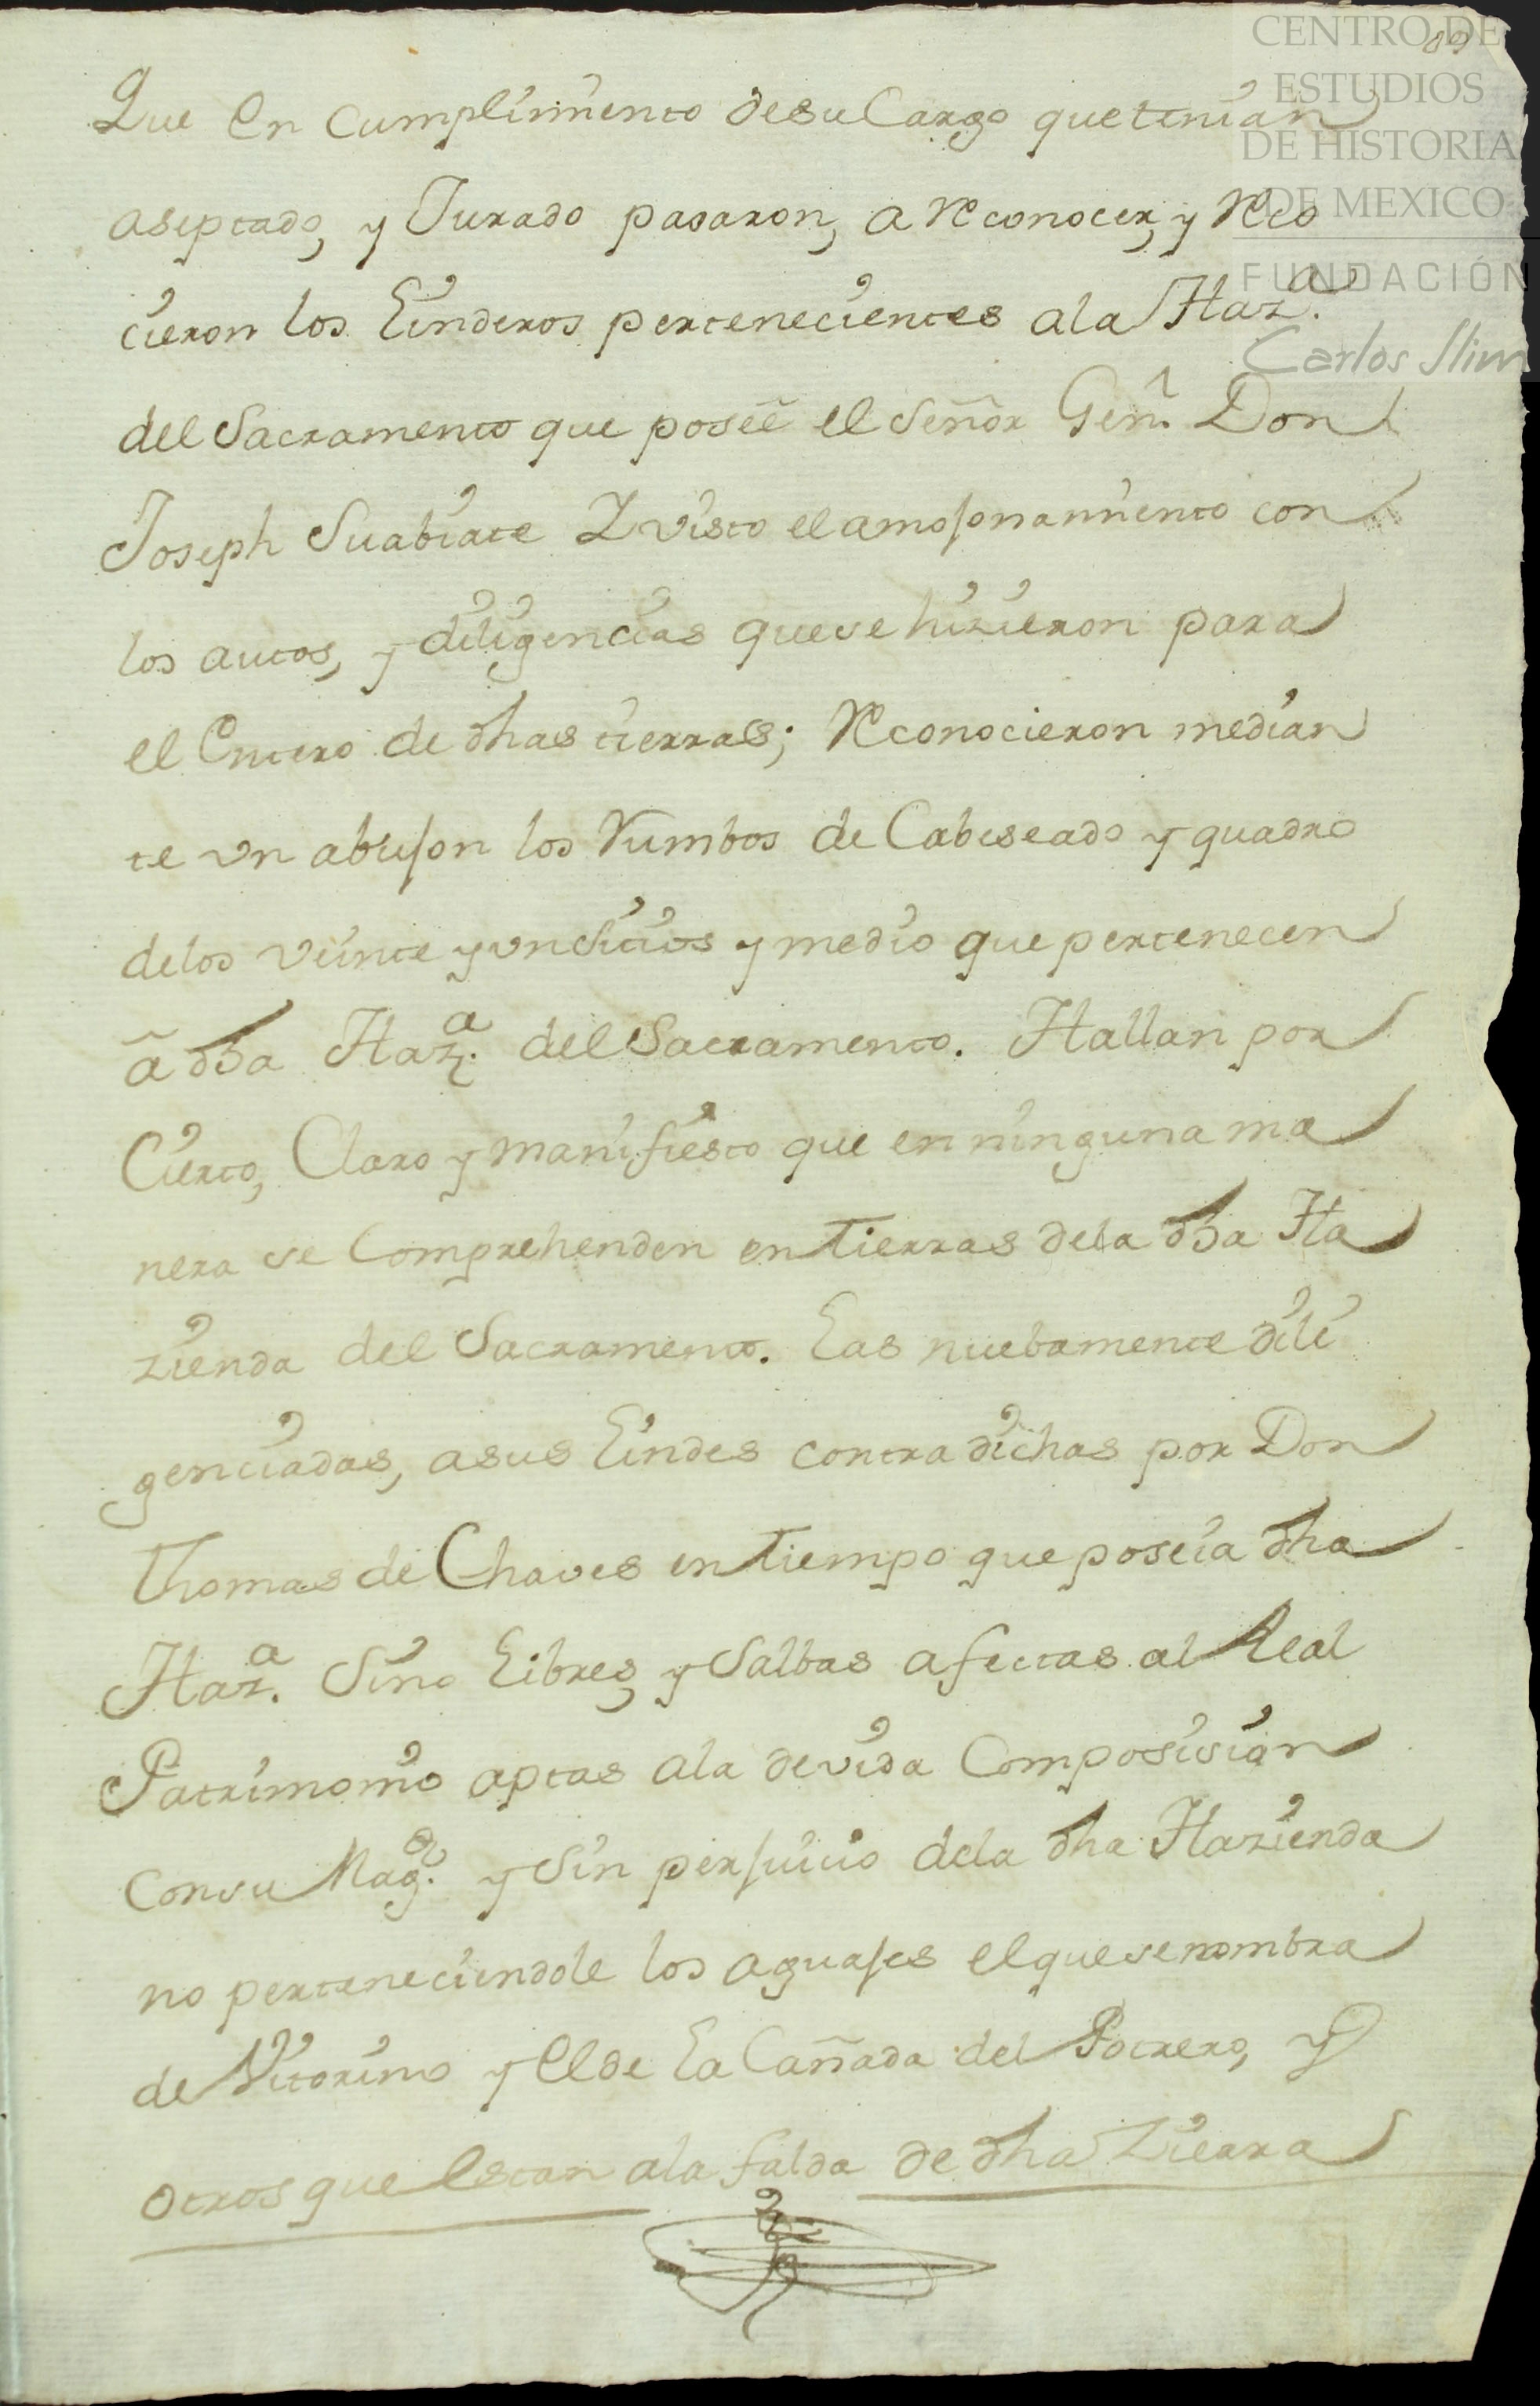 CENTRO DE
ESTUDIOS
DE HISTORIA
DE MEXICO
FUNDACIÓN
Carlos Slim
89
Que En Cumplimiento desu Cargo quetenian
aseptado, y Jurado pasaron, a Reconocer, y Reco
cieron los Linderos pertenecientes ala Haz.ª
del Sacramento que poseê el Señor Gen.l Don
Joseph Suabiate Y visto el amojonamiento con
los autos, y diligencias quese hizieron para
el Entero de dhas tierras; Reconocieron median
te vn abujon los Rumbos de Cabeseado y quadro
delos veinte y vn sitios y medio que pertenecen
ã dha Haz.ª del Sacramento. Hallan por
Cierto, Claro y manifiesto que en ninguna ma
nera se Comprehenden en Tierras dela dha Ha
zienda del Sacramento. Las nuebamente dili
genciadas, asus Lindes contra dichas por Don
Thomas de Chaves en Tiempo que poseia dha
Haz.ª Sino Libres, y Salbas afectas al Real
Patrimonio aptas ala devida Composision
Consu Mag.d y Sin perjuicio dela dha Hazienda
no perteneciendole los aguajes elquesenombra
de Vitorino y Elde La Cañada del Potrero, y
otros que Estan ala falda de dha Zierra